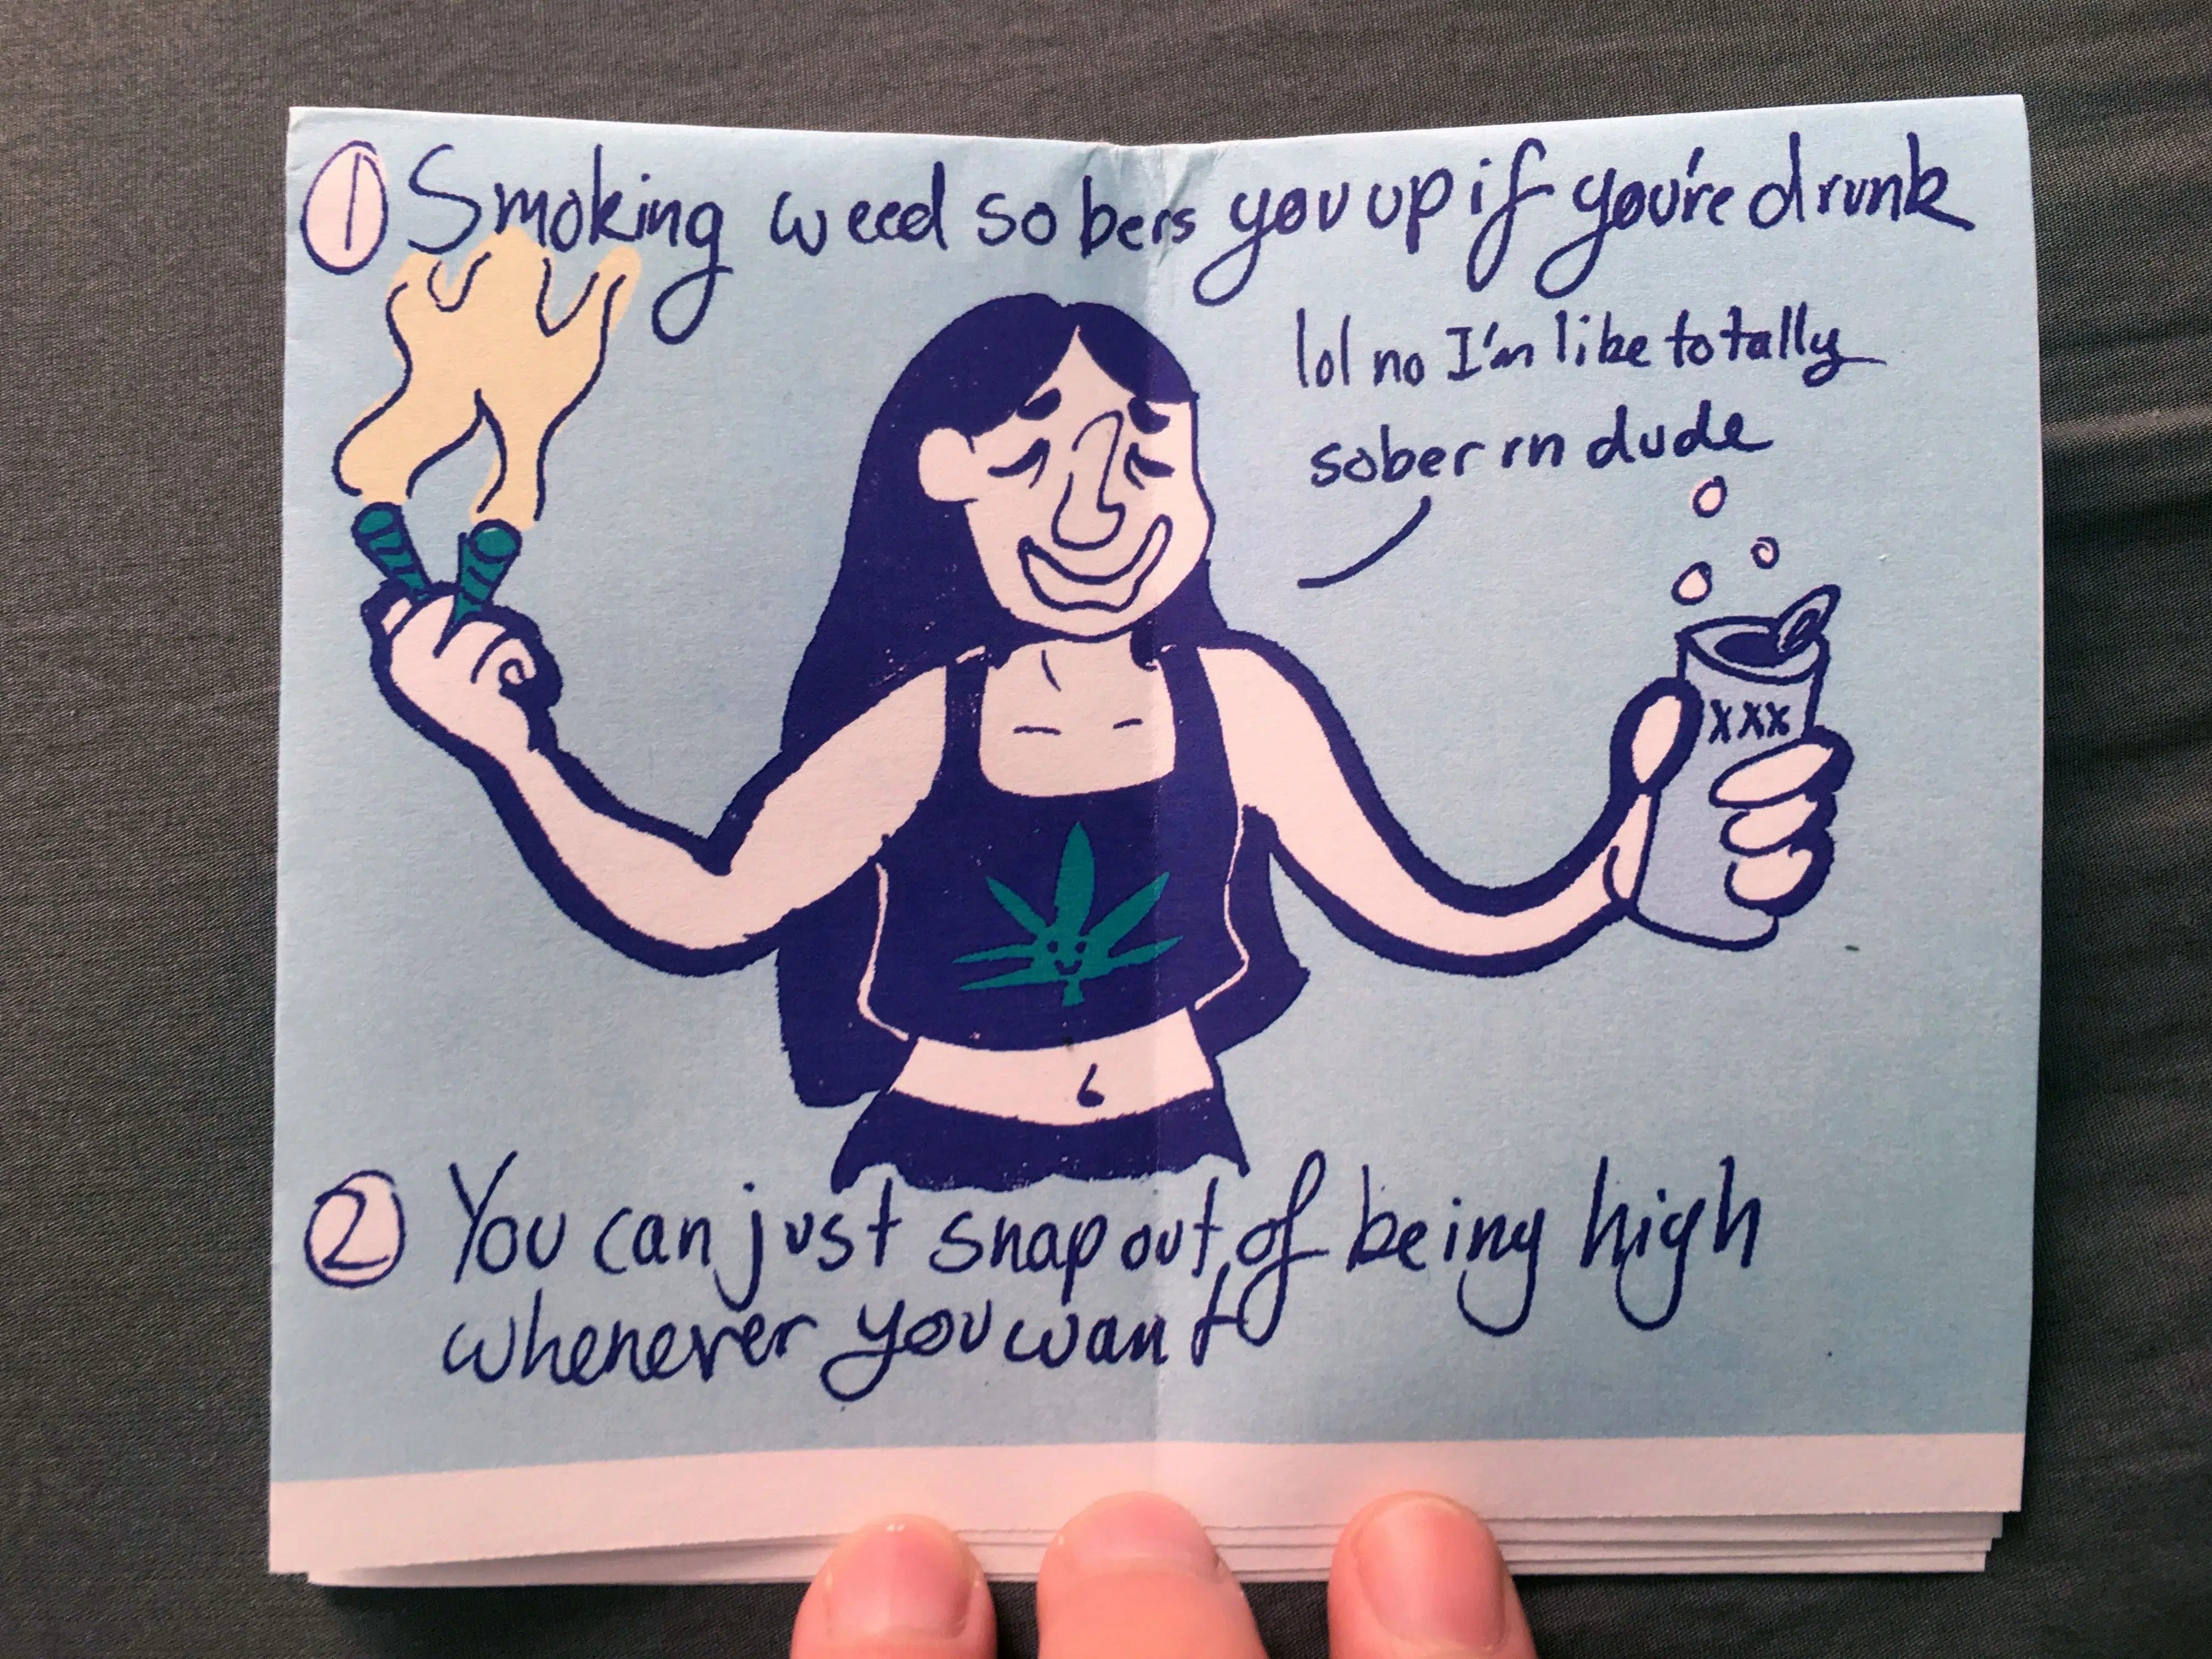 1 Smoking weed sobers you up if you're drunk
lol no I'm like totally
sober rn dude
XXX
2 You can just snap out of being high
whenever you want